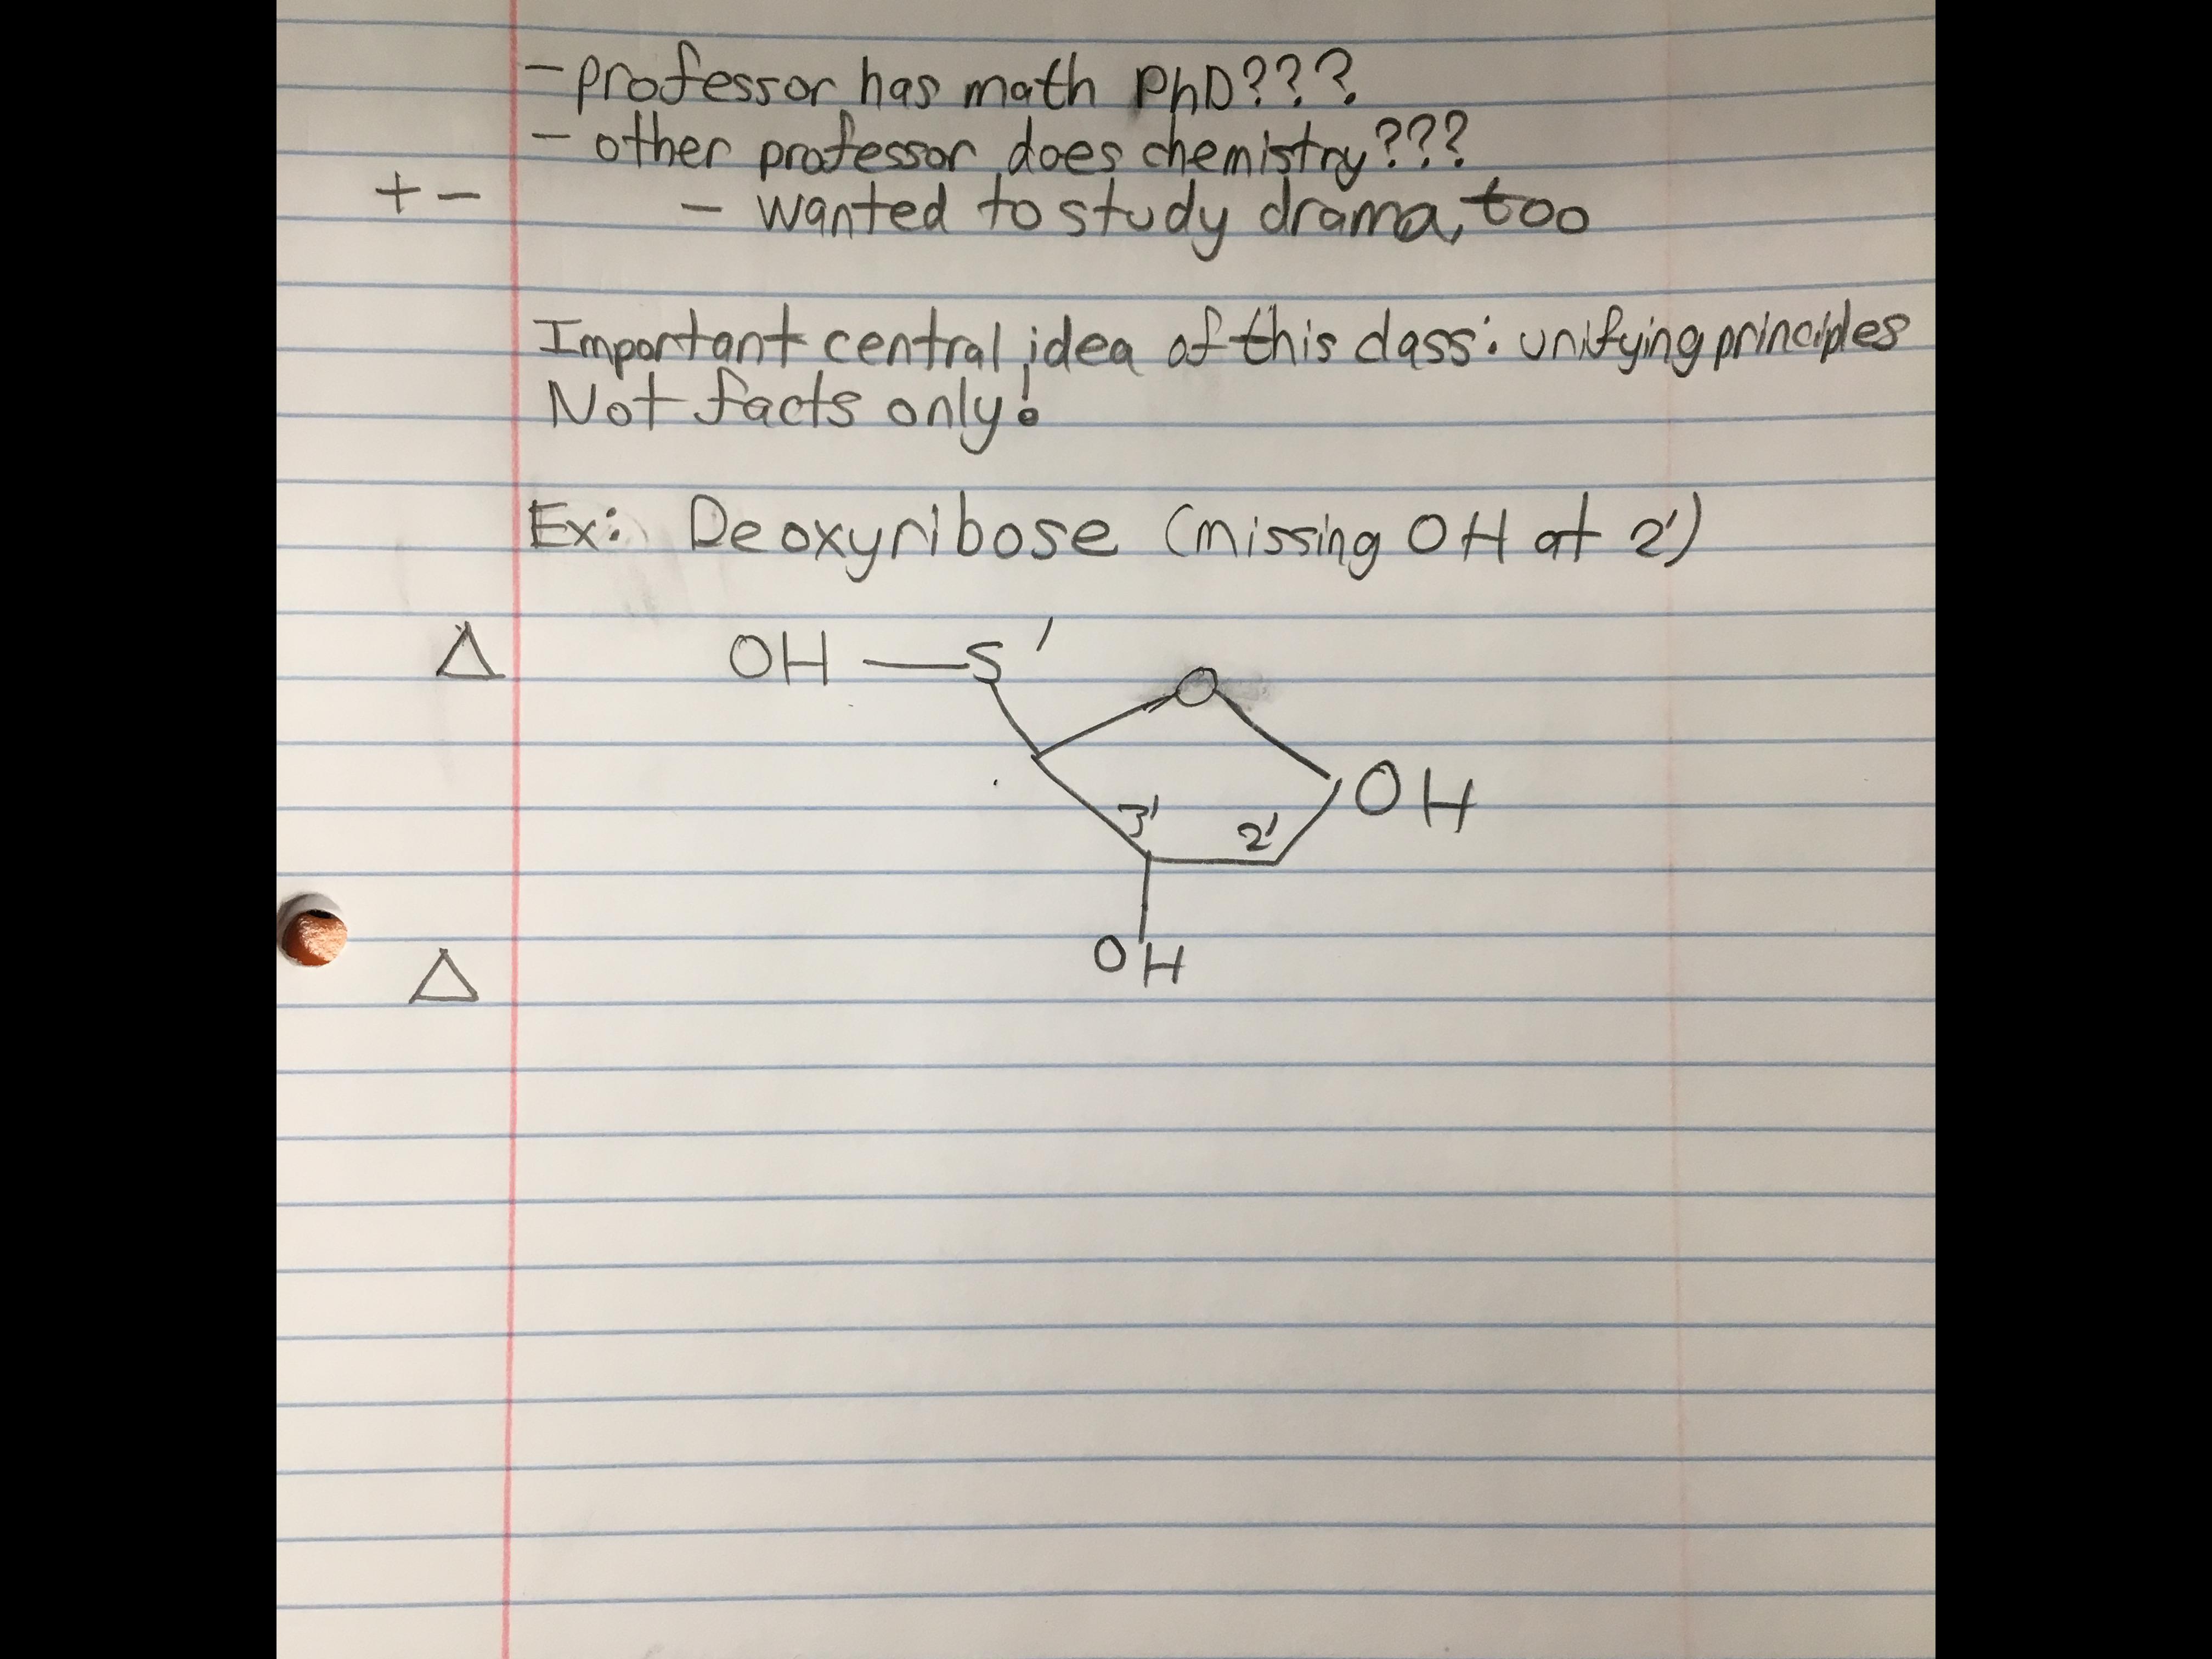 - professor has math PhD???
- other professor does chemistry???
+ - - wanted to study drama, too
Important central idea of this class: unifying principles
Not facts only!
Ex: Deoxyribose (missing OH at 2')
Δ OH — 5' O
OH
3' 2'
Δ OH